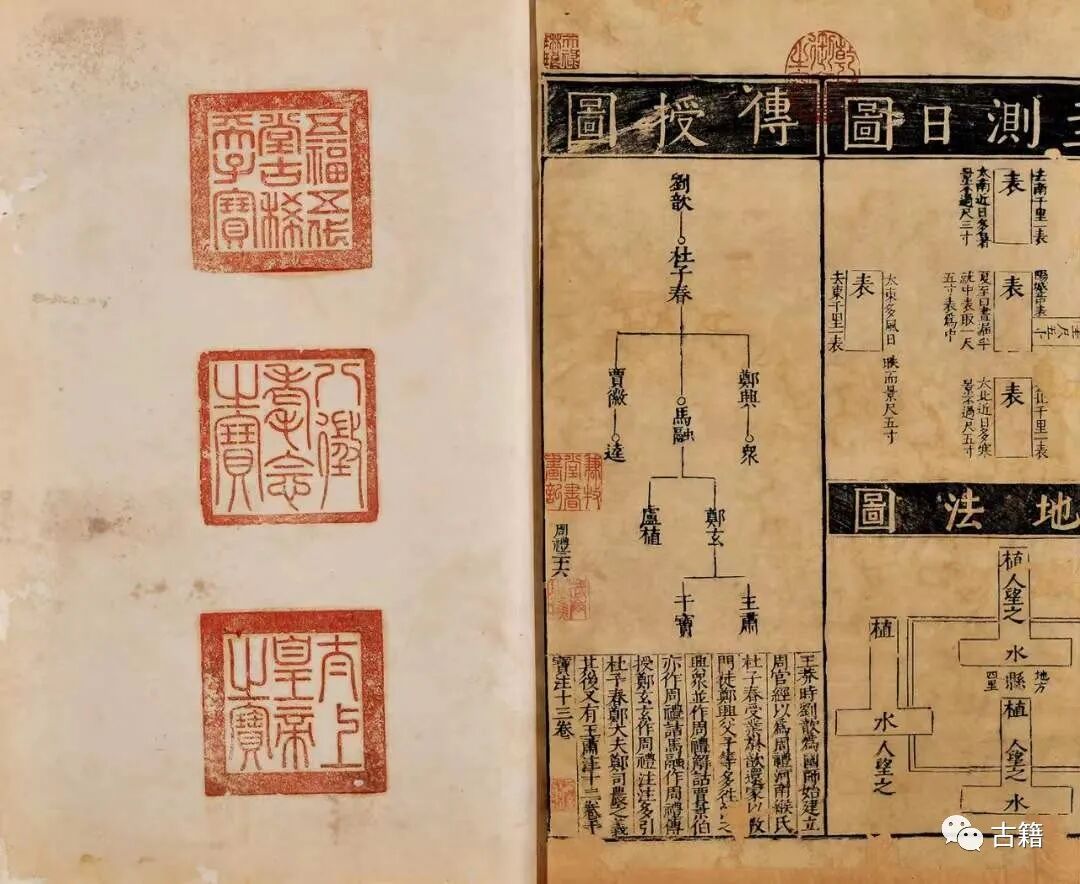 五福五代
堂古稀
天子寶
八徵
耄念
之寶
太上
皇帝
之寶
天祿
琳琅
乾隆
御覽
之寶
測日圖
去南千里一表
表
太南近日多暑
景不過尺三寸
表
夏至日晝漏半
就中表取天
五寸表為中
北千里一表
表
太北近日多寒
景不過尺五寸
太東多風日
昳而景尺五寸
表
去東千里一表
地法圖
植
人望之
水
地方
縣
四里
植
人望之
水
植
水
人望之
傳授圖
劉歆
杜子春
鄭興
眾
馬融
賈徽
逵
鄭玄
盧植
王肅
干寶
王莽時劉歆為國師始建立
周官經以為周禮河南緱氏
杜子春受業於歆還家以教
門徒鄭興父子等多往
興眾並作周禮解詁賈景伯
亦作周禮詁馬融作周禮傳
授鄭玄玄作周禮注注多引
杜子春鄭大夫鄭司農之義
其後又有王肅注十二卷干
寶注十三卷
兼牧
堂書
畫記
周禮
古籍